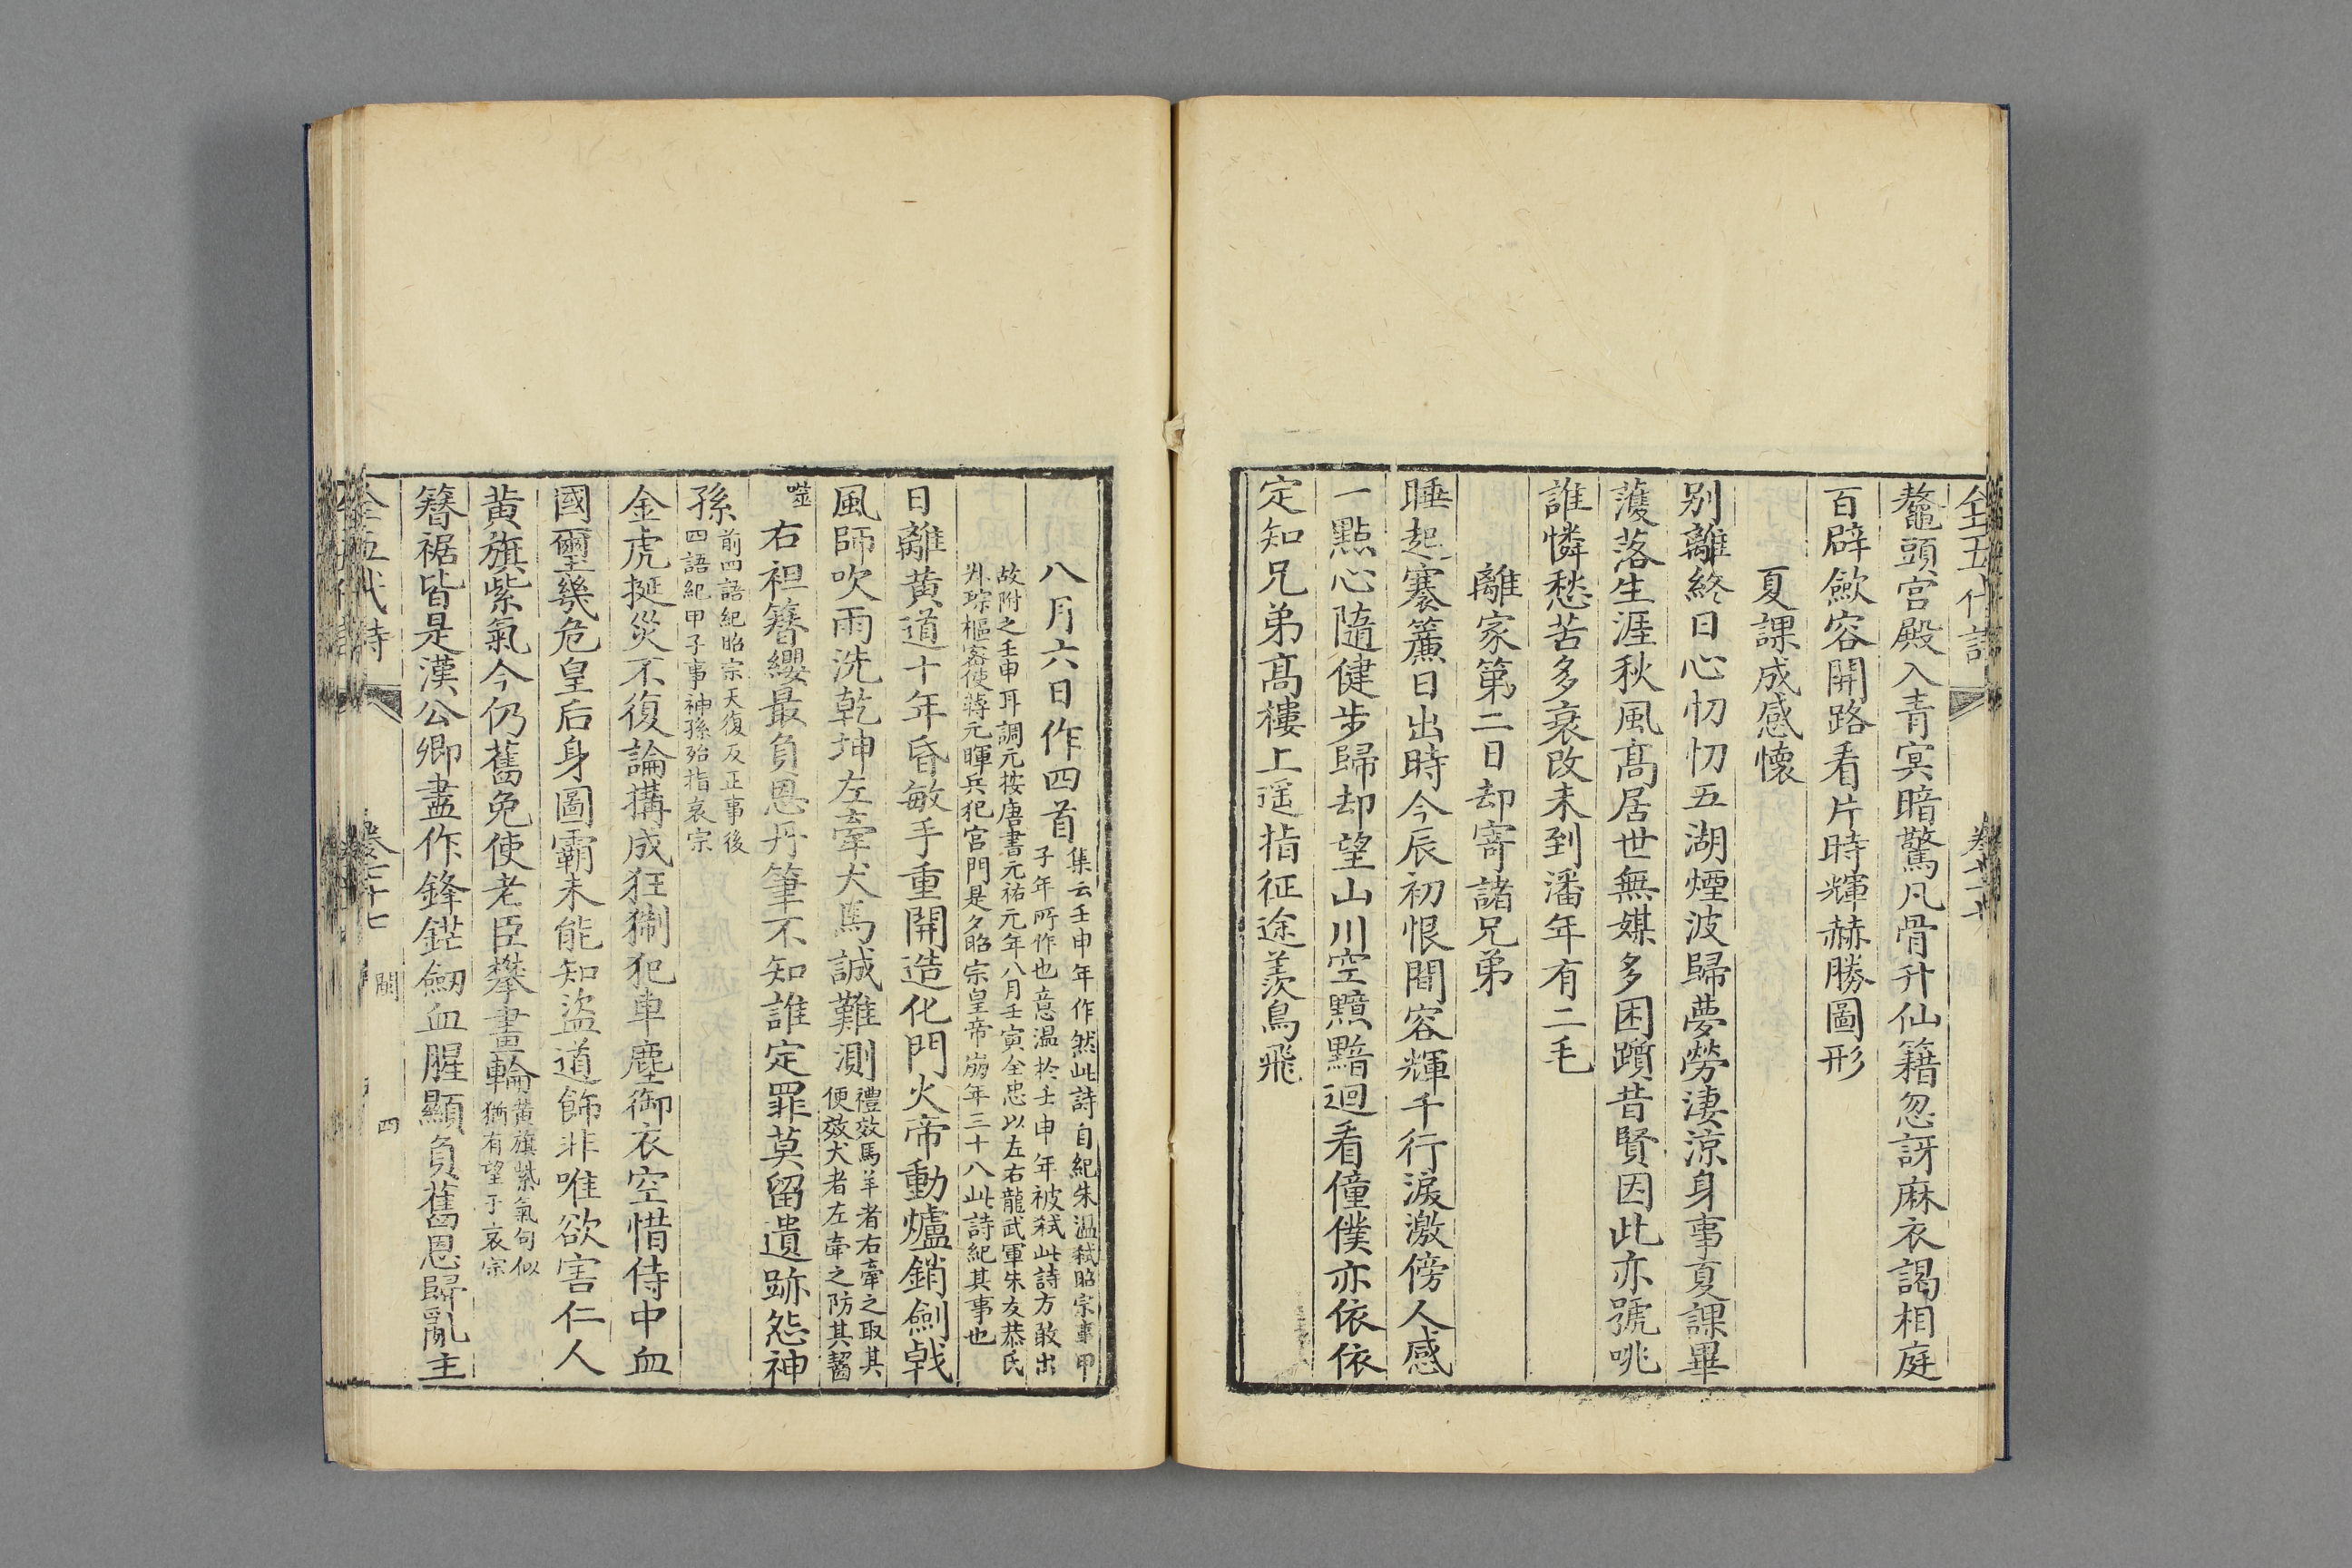 全五代詩
鼇頭宫殿入青冥暗驚凡骨升仙籍忽訝麻衣謁相庭
百辟歛容開路看片時輝赫勝圖形
夏課成感懷
别離終日心忉忉五湖煙波歸夢勞淒涼身事夏課畢
濩落生涯秋風髙居世無媒多困躓昔賢因此亦號咷
誰憐愁苦多衰改未到潘年有二毛
離家第二日却寄諸兄弟
睡起褰簾日出時今辰初恨間容輝千行淚激傍人感
一點心隨健步歸却望山川空黯黯迴看僮僕亦依依
定知兄弟髙樓上遥指征途羡鳥飛
八月六日作四首
集云壬申年作然此詩自紀朱温弑昭宗事甲
子年所作也意温於壬申年被弑此詩方敢出
故附之壬申耳調元按唐書元祐元年八月壬寅全忠以左右龍武軍朱友恭氏
叔琮樞宻使蒋元暉兵犯宫門是夕昭宗皇帝崩年三十八此詩紀其事也
日離黄道十年昏敏手重開造化門火帝動爐銷劍戟
風師吹雨洗乾坤左牽犬馬誠難測
禮效馬羊者右牽之取其
便效犬者左牽之防其齧
噬
右袒簪纓最負恩丹筆不知誰定罪莫留遺跡怨神
孫
前四語紀昭宗天復反正事後
四語紀甲子事神孫殆指哀宗
金虎挻災不復論搆成狂猘犯車塵御衣空惜侍中血
國璽幾危皇后身圖霸未能知盜道飾非唯欲害仁人
黄旗紫氣今仍舊免使老臣攀畫輪
黄旗紫氣句似
猶有望于哀宗
簪裾皆是漢公卿盡作鋒鋩劔血腥顯負舊恩歸亂主
全五代詩
卷七十七
四